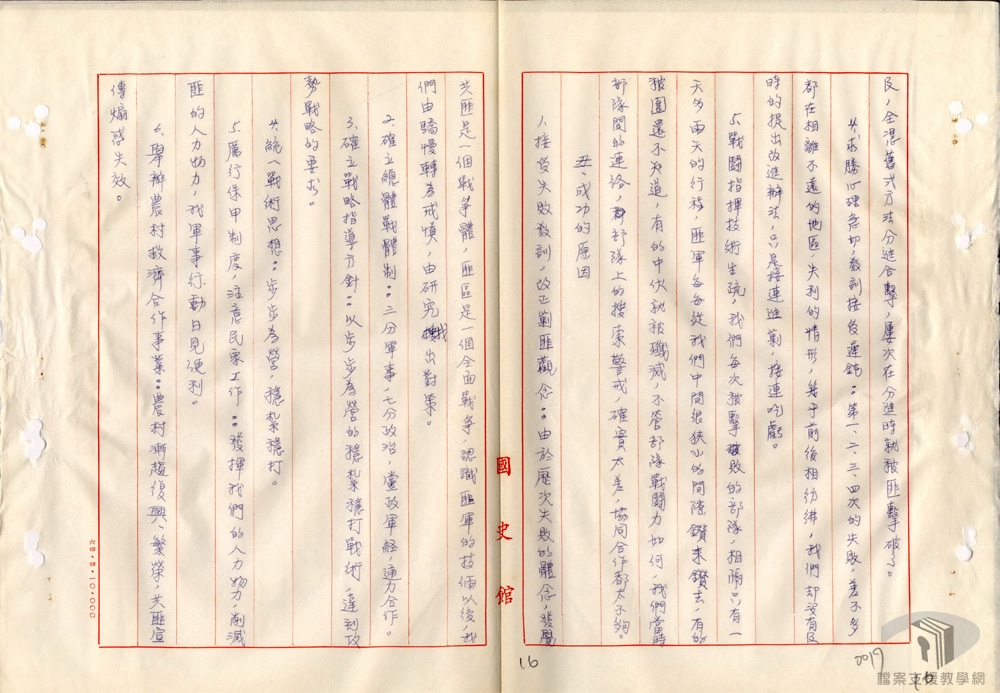 民，全憑舊式方法分進合擊，屢次在分進時就被匪擊破了。
4.求勝心理急切，教訓接受遲鈍：第一、二、三、四次的失敗，差不多
都在相離不遠的地區，失利的情形，幾乎前後相彷彿，我們却沒有及
時的提出改進辦法，只是接連進剿，接連吃虧。
5.戰鬪指揮技術生疏，我們每次被擊敗的部隊，相隔只有一
天多兩天的行程，匪軍每每從我們中間很狹小的間隙鑽來鑽去，有的
被圍還不知道，有的中伏就被殲滅，不管部隊戰鬪力如何，我們當時
部隊間的連絡，部隊上的搜索警戒，確實太差，協同合作都太不夠。
五、成功的原因
1.接受失敗教訓，改正剿匪觀念：由於歷次失敗的體念，發覺
共匪是一個戰爭體，匪區是一個全面戰爭，認識匪軍的技倆以後，我
們由驕慢轉為戒慎，由研究找出對策。
2.確立總體戰體制：三分軍事，七分政治，黨政軍經，通力合作。
3.確立戰略指導方針：以步步為營的穩紮穩打戰術，達到攻
勢戰略的要求。
4.統一戰術思想：步步為營，穩紮穩打。
5.厲行保甲制度，注意民眾工作：發揮我們的人力物力，削減
匪的人力物力，我軍事行動日見便利。
6.舉辦農村救濟合作事業：農村漸趨復興、繁榮，共匪宣
傳煽惑失效。
國史館
六四．四．10.000
16
0019
16
檔案支援教學網